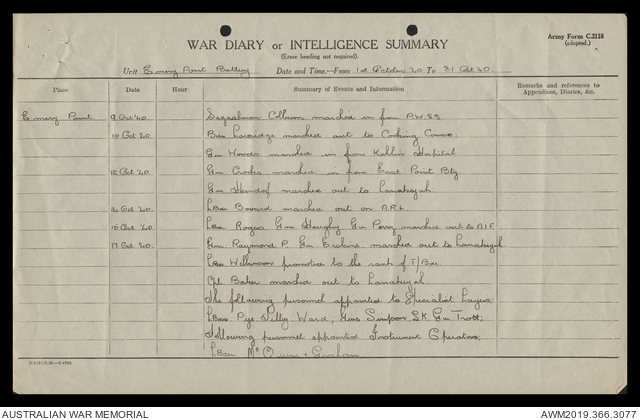 Army Form C.2118
(adapted.)
WAR DIARY or INTELLIGENCE SUMMARY
(Erase heading not required).
Unit Emery Point Battery Date and Time—From 1st October '40 To 31 Oct '40.
Place Date Hour Summary of Events and Information Remarks and references to Appendices, Diaries, &c.
Emery Point 9 Oct '40. Signalman marched in from P.W.SS
10 Oct '40. Bdr marched out to Cooking Course.
Gnr Woods marched in from Kahlin Hospital
12 Oct '40. Gnr marched in from East Point Bty.
Gnr marched out to Larrakeyah
14 Oct '40. LBdr marched out on A.R.L.
16 Oct '40. LBdr Rogers Gnr Gnr Perry marched out to A.I.F.
17 Oct '40. Gnr Raymond P. Gnr Erskine marched out to Larrakeyah.
LBdr Wilkinson promoted to the rank of T/Bdr.
Cpl Baker marched out to Larrakeyah.
The following personnel appointed to Specialist Layers;
LBdrs Pye Ward; Gnrs Simpson S.K. Gnr Trott;
Following personnel appointed Instrument Operators;
LBdr + Graham
AUSTRALIAN WAR MEMORIAL
AWM2019.366.3077